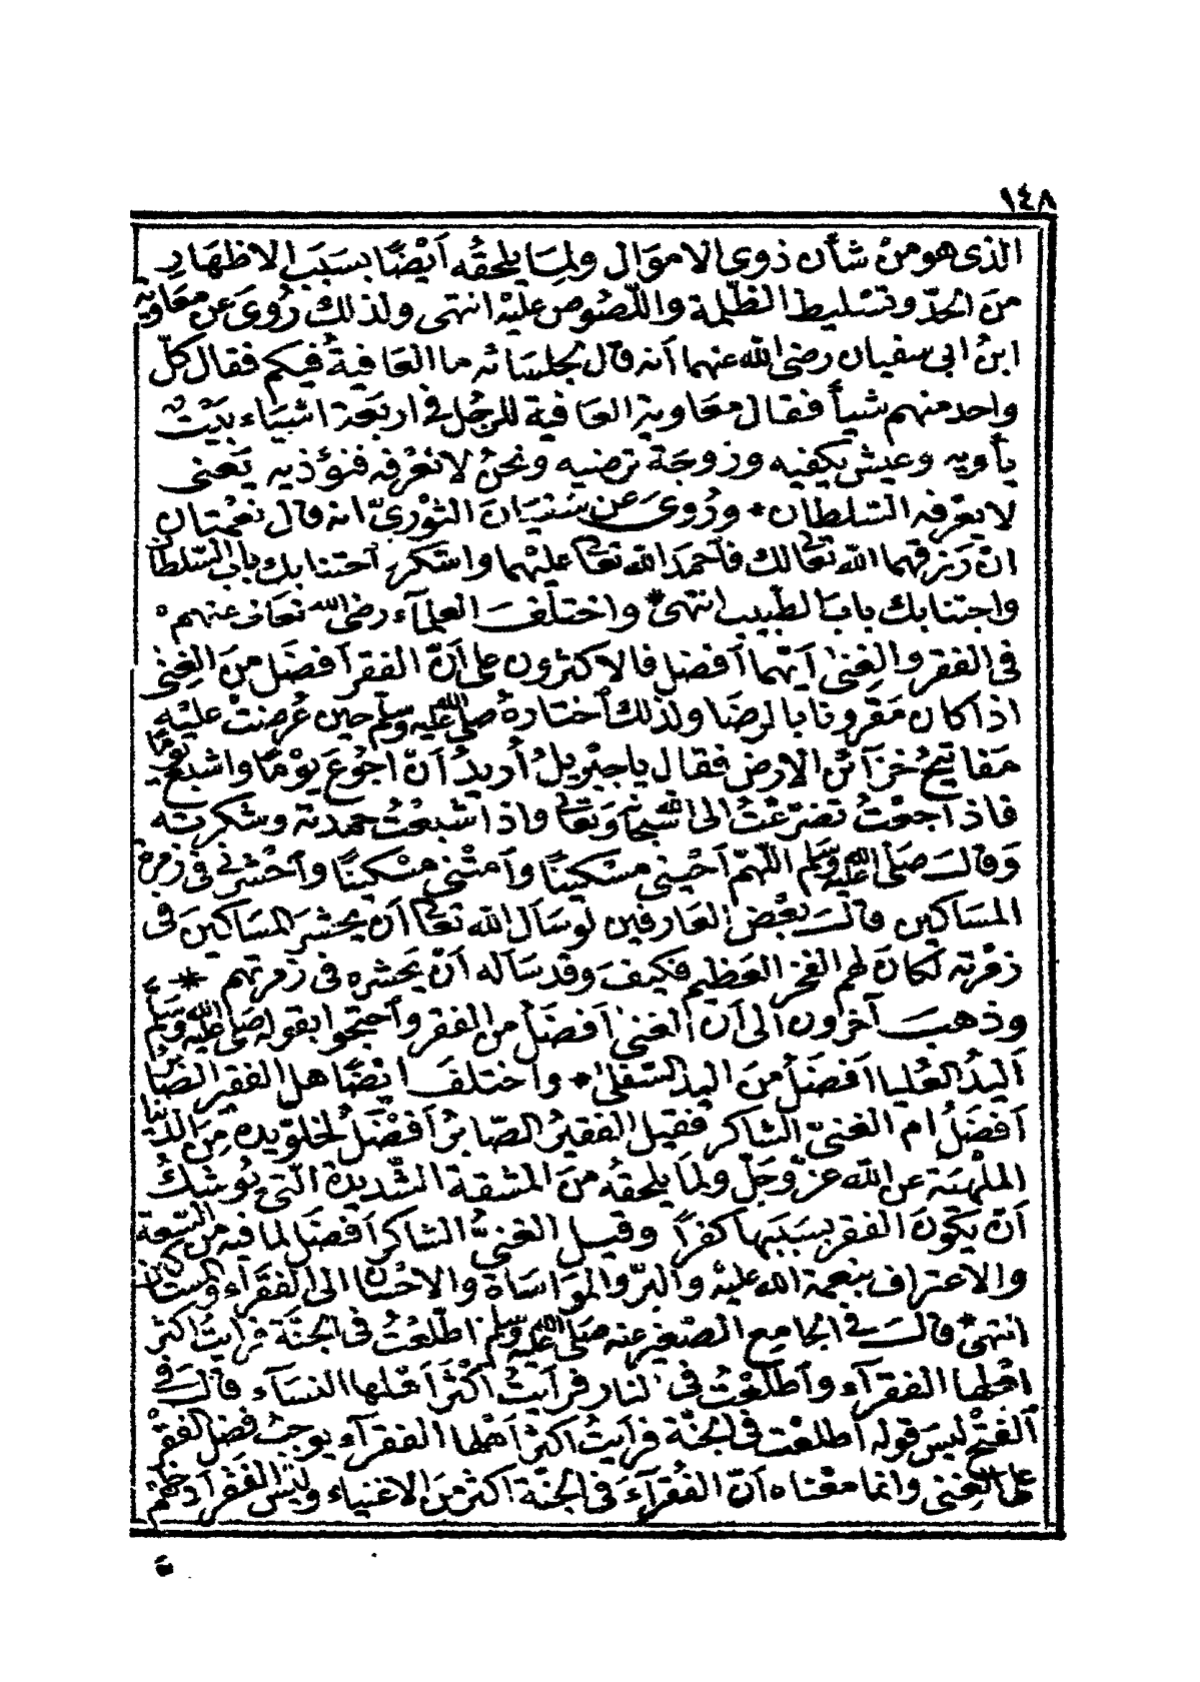 ١٤٨
الذى هو من شأن ذوى الاموال ولما يلحقه أيضًا بسبب الاظهار
من الحدّ وتسليط الظلمة واللصوص عليه انتهى ولذلك روى عن معاوية
ابن ابى سفيان رضى الله عنهما أنه قال لجلسائه ما العافية فيكم فقال كلّ
واحد منهم شيأ فقال معاوية العافية للرجل فى اربعة اشياء بيت
يأويه وعيش يكفيه وزوجة ترضيه ونحن لا نعرفه فنؤذيه يعنى
لا يعرفه السلطان * وروى عن سفيان الثورىّ انه قال نعمتان
ان رزقهما الله تعالى لك فأحمد الله تعالى عليهما واشكر اجتنابك باب السلطان
واجتنابك باب الطبيب انتهى * واختلف العلمآء رضى الله تعالى عنهم
فى الفقر والغنى أيهما أفضل فالاكثرون على أنّ الفقر أفضل من الغنى
اذا كان مقرونا بالرضا ولذلك أختاره صلى الله عليه وسلم حين عرضت عليه
مفاتيح خزآئن الارض فقال يا جبريل أريد أنّ اجوع يومًا واشبع يومًا
فاذا جعت تضرّعت الى الله سبحانه وتعالى واذا شبعت حمدته وشكرته
وقال صلى الله عليه وسلم اللهمّ أحينى مسكينًا وأمتنى مسكينًا وأحشرنى فى زمرة
المساكين قال بعض العارفين لو سأل الله تعالى أن يحشر المساكين فى
زمرته لكان لهم الفخر العظيم فكيف وقد سأله أنّ يحشره فى زمرتهم *
وذهب آخرون الى أن الغنى أفضل من الفقر وأحتجوا بقوله صلى الله عليه وسلم
أليد العليا أفضل من اليد السفلى * وأختلف ايضًا هل الفقير الصابر
أفضل ام الغنىّ الشاكر فقيل الفقير الصابر أفضل لخلوّ يده من الدنيا
الملهية عن الله عزّ وجلّ ولما يلحقه من المشقة الشديدة التى يوشك
أنّ يكون الفقر بسببها كفرًا وقيل الغنىّ الشاكر أفضل لما فيه من السعة
والاعتراف بنعمة الله عليه والبرّ والمواساة والاحسان الى الفقرآء والمساكين
انتهى * قال فى الجامع الصغير عنه صلى الله عليه وسلم اطّلعت فى الجنّة فرأيت اكثر
اهلها الفقرآء وأطّلعت فى النار فرأيت أكثر أهلها النسآء قال فى
ألفتح ليس قوله أطلعت فى الجنّة فرأيت اكثر أهلها الفقرآء يوجب فضل الفقر
على الغنى وانما معناه أنّ الفقرآء فى الجنّة أكثر من الاغنياء وليس الفقر أدخلهم